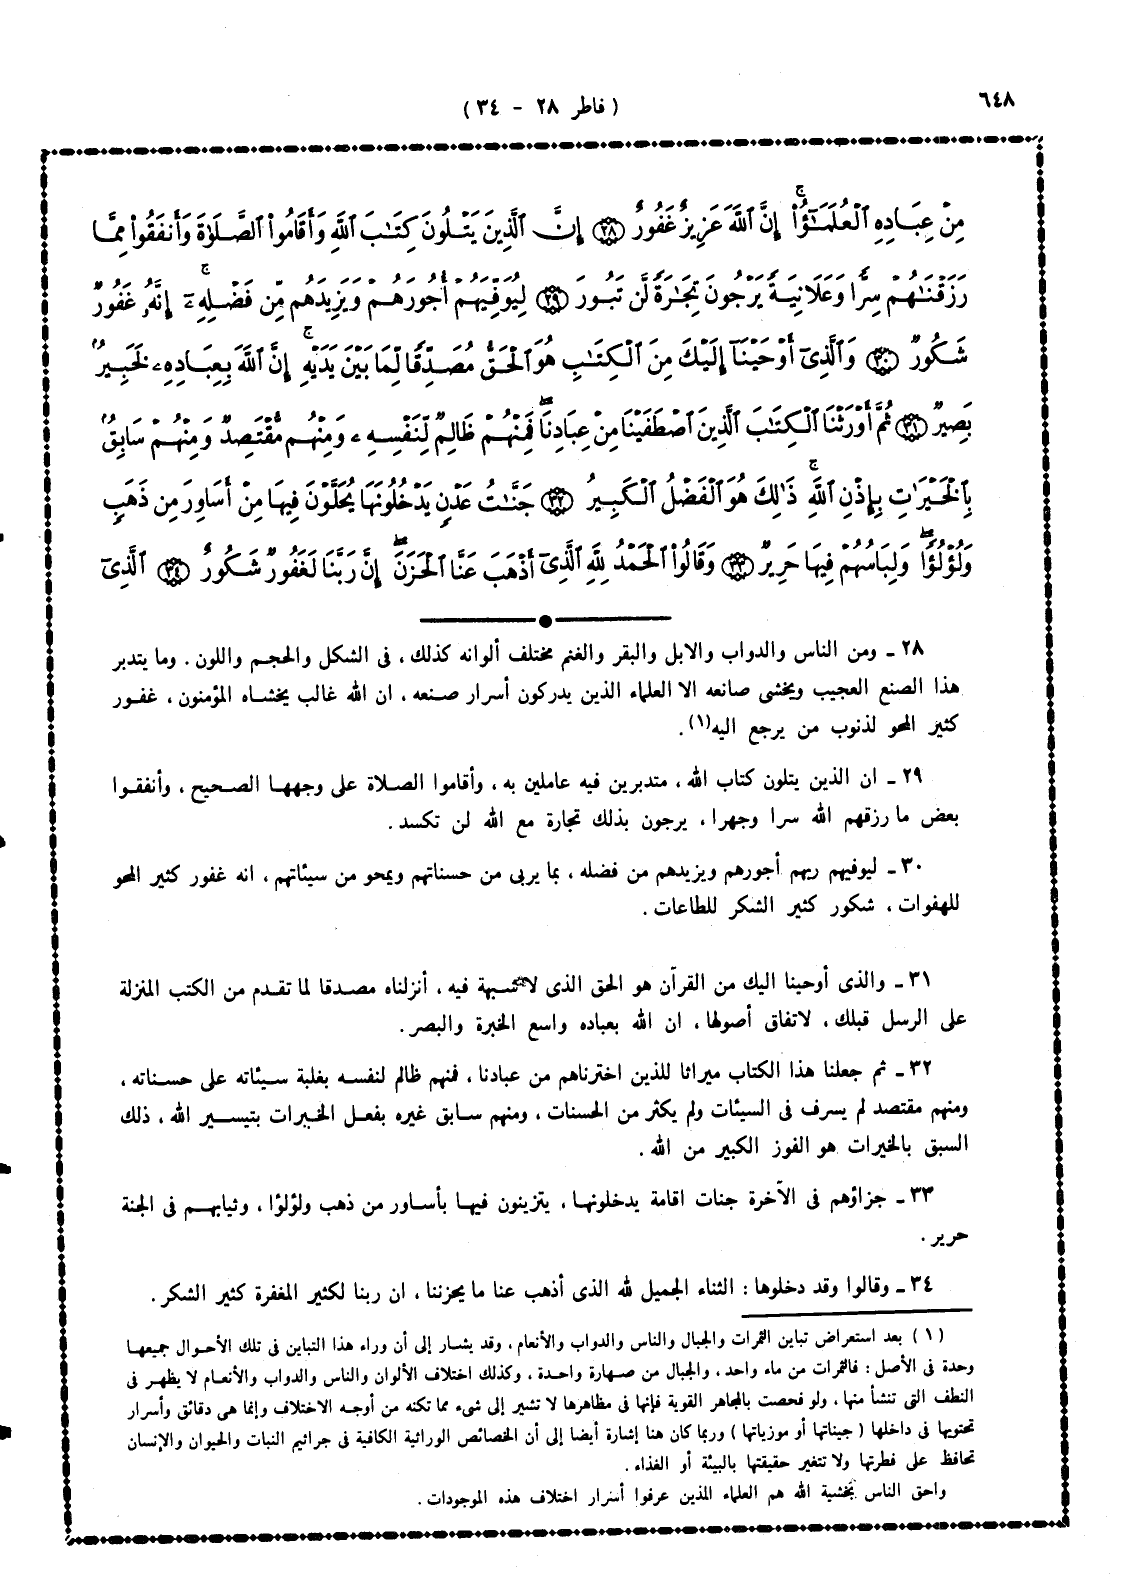 ٦٤٨
( فاطر ٢٨ - ٣٤ )
مِنْ عِبَادِهِ ٱلْعُلَمَـٰٓؤُا۟ ۗ إِنَّ ٱللَّهَ عَزِيزٌ غَفُورٌ ٢٨ إِنَّ ٱلَّذِينَ يَتْلُونَ كِتَـٰبَ ٱللَّهِ وَأَقَامُوا۟ ٱلصَّلَوٰةَ وَأَنفَقُوا۟ مِمَّا
رَزَقْنَـٰهُمْ سِرًّا وَعَلَانِيَةً يَرْجُونَ تِجَـٰرَةً لَّن تَبُورَ ٢٩ لِيُوَفِّيَهُمْ أُجُورَهُمْ وَيَزِيدَهُم مِّن فَضْلِهِۦٓ ۚ إِنَّهُۥ غَفُورٌ
شَكُورٌ ٣٠ وَٱلَّذِىٓ أَوْحَيْنَآ إِلَيْكَ مِنَ ٱلْكِتَـٰبِ هُوَ ٱلْحَقُّ مُصَدِّقًا لِّمَا بَيْنَ يَدَيْهِ ۗ إِنَّ ٱللَّهَ بِعِبَادِهِۦ لَخَبِيرٌۢ
بَصِيرٌ ٣١ ثُمَّ أَوْرَثْنَا ٱلْكِتَـٰبَ ٱلَّذِينَ ٱصْطَفَيْنَا مِنْ عِبَادِنَا ۖ فَمِنْهُمْ ظَالِمٌ لِّنَفْسِهِۦ وَمِنْهُم مُّقْتَصِدٌ وَمِنْهُمْ سَابِقٌۢ
بِٱلْخَيْرَٰتِ بِإِذْنِ ٱللَّهِ ۚ ذَٰلِكَ هُوَ ٱلْفَضْلُ ٱلْكَبِيرُ ٣٢ جَنَّـٰتُ عَدْنٍ يَدْخُلُونَهَا يُحَلَّوْنَ فِيهَا مِنْ أَسَاوِرَ مِن ذَهَبٍ
وَلُؤْلُؤًا ۖ وَلِبَاسُهُمْ فِيهَا حَرِيرٌ ٣٣ وَقَالُوا۟ ٱلْحَمْدُ لِلَّهِ ٱلَّذِىٓ أَذْهَبَ عَنَّا ٱلْحَزَنَ ۖ إِنَّ رَبَّنَا لَغَفُورٌ شَكُورٌ ٣٤ ٱلَّذِىٓ
٢٨ ـ ومن الناس والدواب والابل والبقر والغنم مختلف ألوانه كذلك ، فى الشكل والحجم واللون . وما يتدبر
هذا الصنع العجيب ويخشى صانعه الا العلماء الذين يدركون أسرار صنعه ، ان الله غالب يخشاه المؤمنون ، غفور
كثير المحو لذنوب من يرجع اليه(١) .
٢٩ ـ ان الذين يتلون كتاب الله ، متدبرين فيه عاملين به ، وأقاموا الصلاة على وجهها الصحيح ، وأنفقوا
بعض ما رزقهم الله سرا وجهرا ، يرجون بذلك تجارة مع الله لن تكسد .
٣٠ ـ ليوفيهم ربهم أجورهم ويزيدهم من فضله ، بما يربى من حسناتهم ويمحو من سيئاتهم ، انه غفور كثير المحو
للهفوات ، شكور كثير الشكر للطاعات .
٣١ ـ والذى أوحينا اليك من القرآن هو الحق الذى لا شبهة فيه ، أنزلناه مصدقا لما تقدم من الكتب المنزلة
على الرسل قبلك ، لاتفاق أصولها ، ان الله بعباده واسع الخبرة والبصر .
٣٢ ـ ثم جعلنا هذا الكتاب ميراثا للذين اخترناهم من عبادنا ، فمنهم ظالم لنفسه بغلبة سيئاته على حسناته ،
ومنهم مقتصد لم يسرف فى السيئات ولم يكثر من الحسنات ، ومنهم سابق غيره بفعل الخيرات بتيسير الله ، ذلك
السبق بالخيرات هو الفوز الكبير من الله .
٣٣ ـ جزاؤهم فى الآخرة جنات اقامة يدخلونها ، يتزينون فيها بأساور من ذهب ولؤلؤا ، وثيابهم فى الجنة
حرير .
٣٤ ـ وقالوا وقد دخلوها : الثناء الجميل لله الذى أذهب عنا ما يحزننا ، ان ربنا لكثير المغفرة كثير الشكر .
( ١ ) بعد استعراض تباين الثمرات والجبال والناس والدواب والأنعام ، وقد يشار إلى أن وراء هذا التباين فى تلك الأحوال جميعها
وحدة فى الأصل : فالثمرات من ماء واحد ، والجبال من صهارة واحدة ، وكذلك اختلاف الألوان والناس والدواب والأنعام لا يظهر فى
النطف التى تنشأ منها ، ولو فحصت بالمجاهر القوية فإنها فى مظاهرها لا تشير إلى شىء مما تكنه من أوجه الاختلاف وإنما هى دقائق وأسرار
تحتويها فى داخلها ( جيناتها أو موزياتها ) وربما كان هنا إشارة أيضا إلى أن الخصائص الوراثية الكافية فى جراثيم النبات والحيوان والإنسان
تحافظ على فطرتها ولا تتغير حقيقتها بالبيئة أو الغذاء .
واحق الناس بخشية الله هم العلماء المذين عرفوا أسرار اختلاف هذه الموجودات .